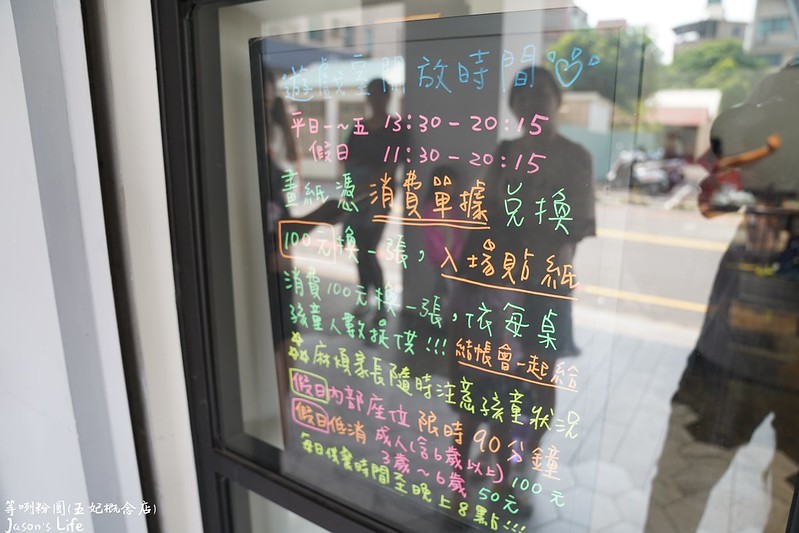 遊戲室開放時間
平日一~五 13:30-20:15
假日 11:30-20:15
畫紙憑消費單據兌換
100元換一張，入場貼紙
消費100元換一張，依每桌
孩童人數提供!!! 結帳會一起給
麻煩家長隨時注意孩童狀況
假日內部座位限時90分鐘
假日低消 成人(含6歲以上) 100元
3歲~6歲 50元
每日供餐時間至晚上8點!!!
等咧粉圓(五妃概念店)
Jason's Life